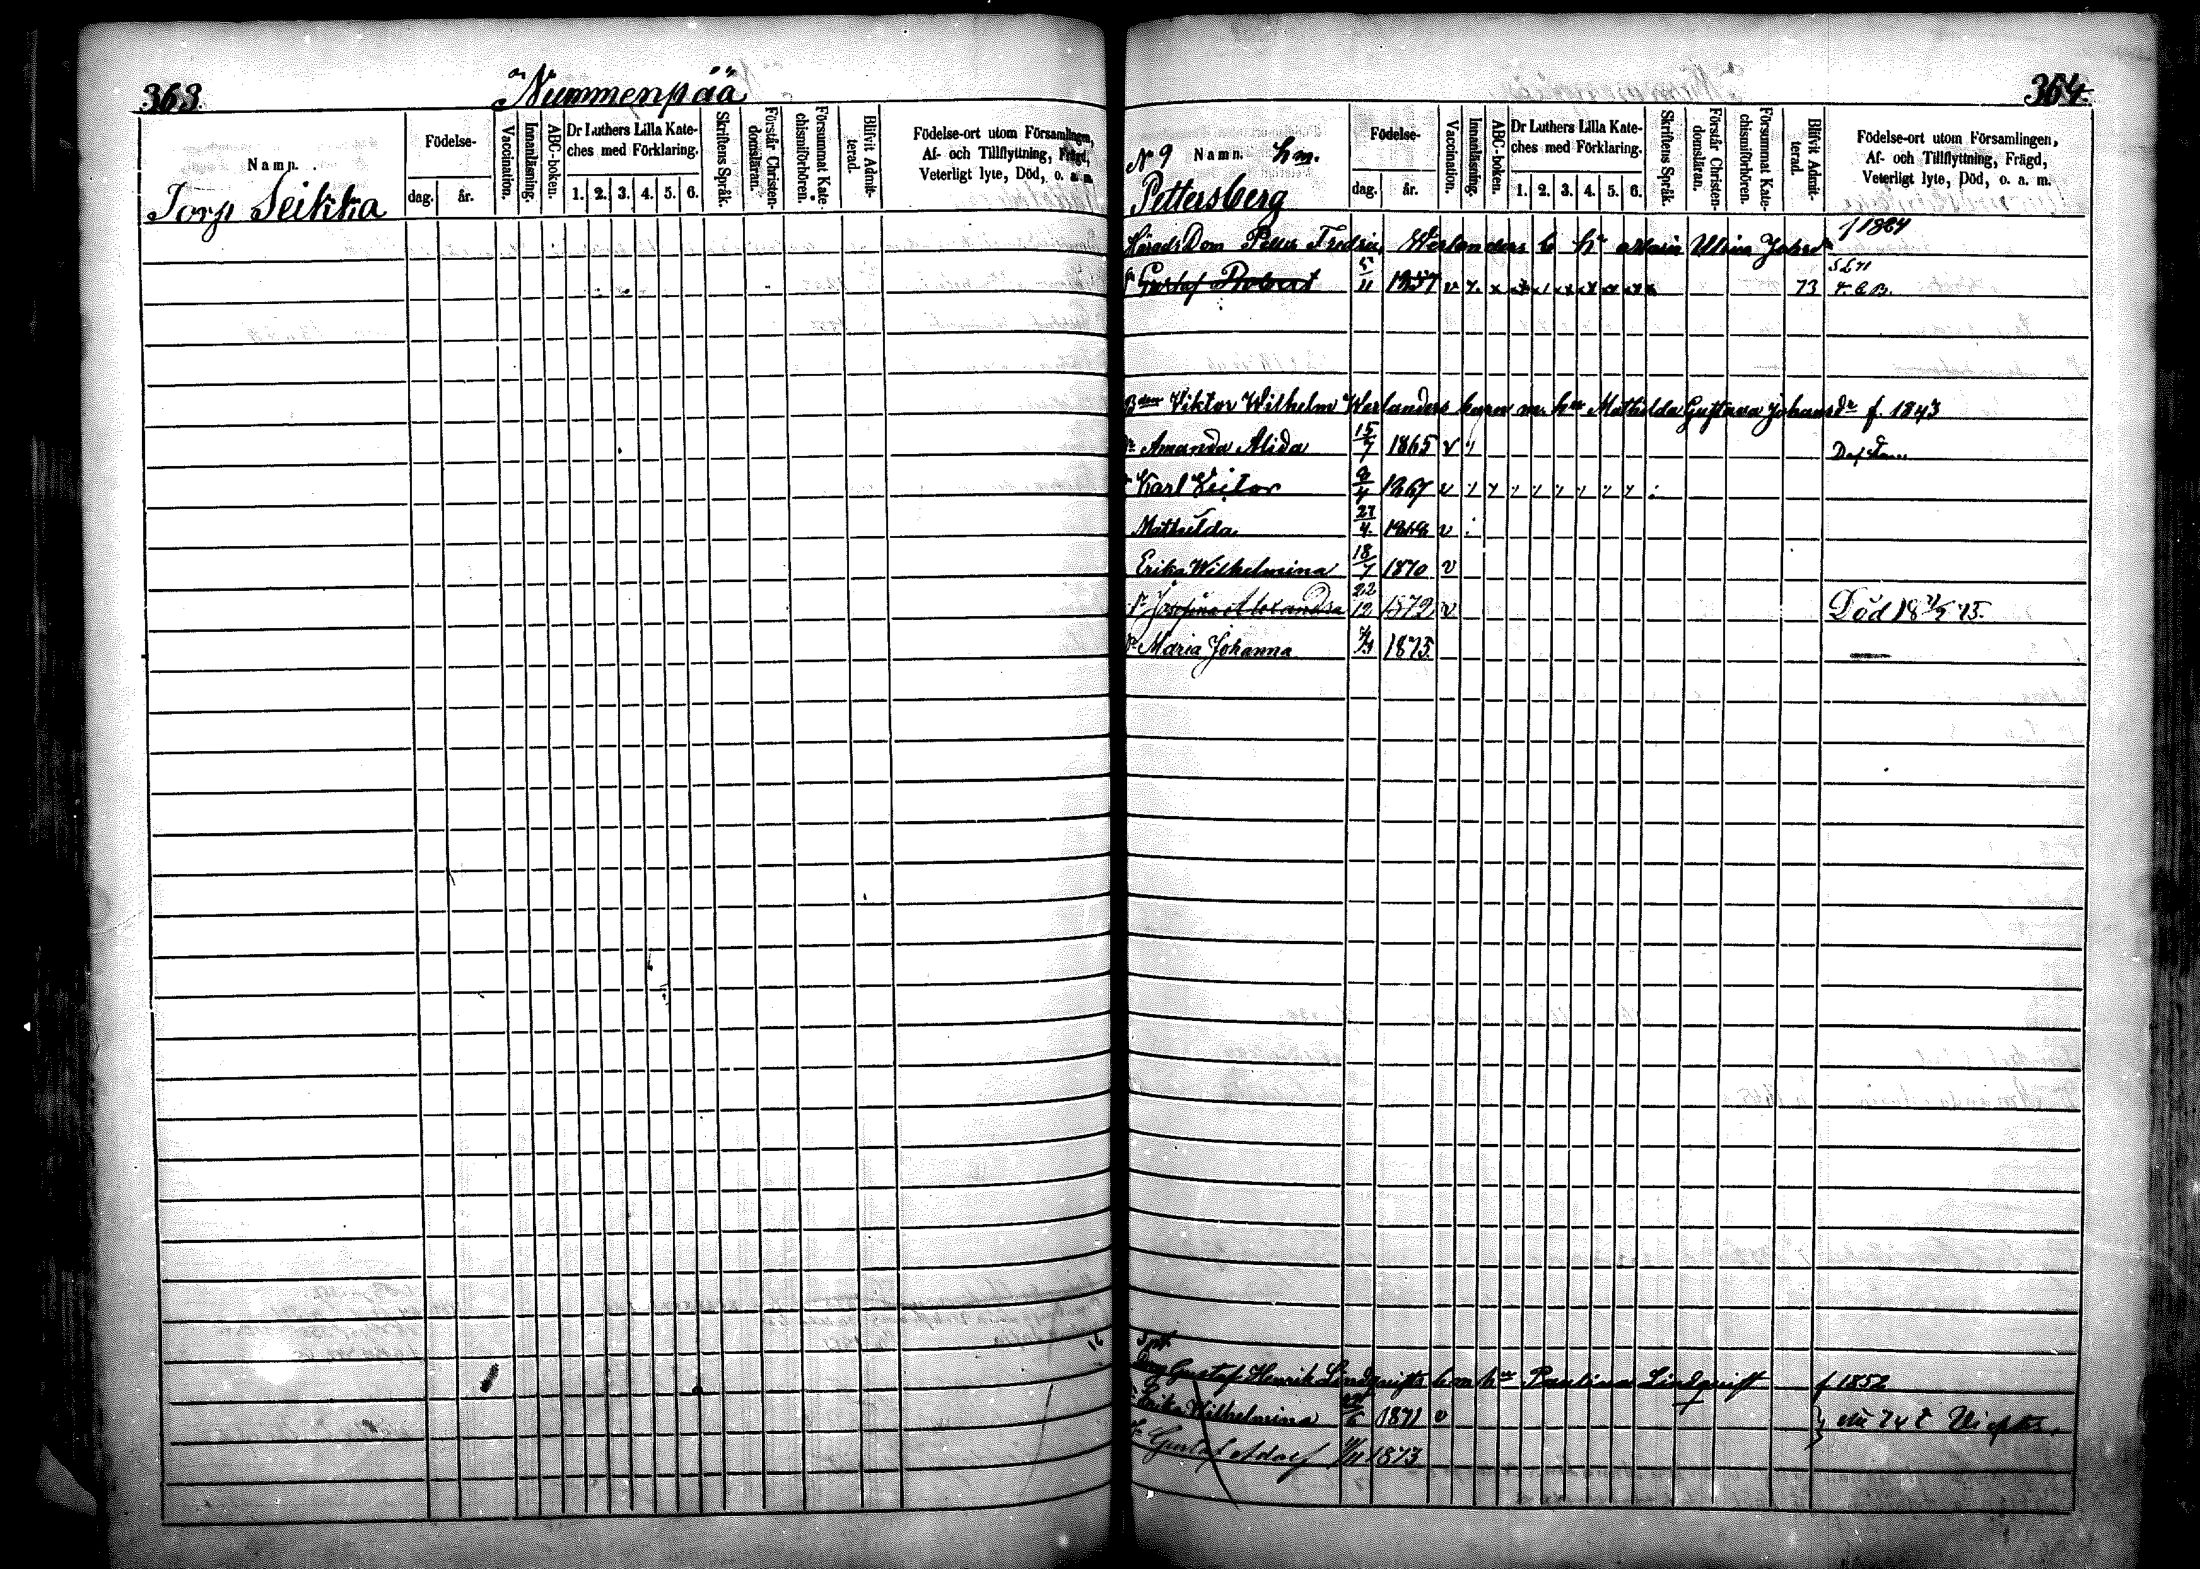 363.
Nummenpää
Namn.
Födelse-
dag.
år.
Vaccination.
Innanläsning.
ABC-boken.
Dr Luthers Lilla Kate-
ches med Förklaring.
1. 2. 3. 4. 5. 6.
Skriftens Språk.
Förstår Christen-
domsläran.
Försummat Kate-
chismiförhören.
Blifvit Admit-
terad.
Födelse-ort utom Församlingen,
Af- och Tillflyttning, Frägd,
Veterligt lyte, Död, o. a. m.
Torp Seikka
364.
N 9 Namn. hm.
Pettersberg
Födelse-
dag.
år.
Vaccination.
Innanläsning.
ABC-boken.
Dr Luthers Lilla Kate-
ches med Förklaring.
1. 2. 3. 4. 5. 6.
Skriftens Språk.
Förstår Christen-
domsläran.
Försummat Kate-
chismiförhören.
Blifvit Admit-
terad.
Födelse-ort utom Församlingen,
Af- och Tillflyttning, Frägd,
Veterligt lyte, Död, o. a. m.
Härads Dom Petter Fredric Werlanders b hu Maria Ulrica Johsdr f 1824
Gustaf Robert 5/11 1857 v 73
Viktor Wilhelm Werlanders barn m. hu Mathilda Gustava Johansdr f. 1843
Dr Amanda Alida 15/7 1865 v
Karl Victor 1867 v
Mathilda 27/4 v
Erika Wilhelmina 18/7 1870 v
Dr Josefina Alexandra 22/12 1872 v Död 18 75.
Dr Maria Johanna 1875
Gustaf Henrik Lindqvists b m hu Paulina Lindqvist f 1852
Erika Wilhelmina 1871 v
Gustaf Adolf 1873